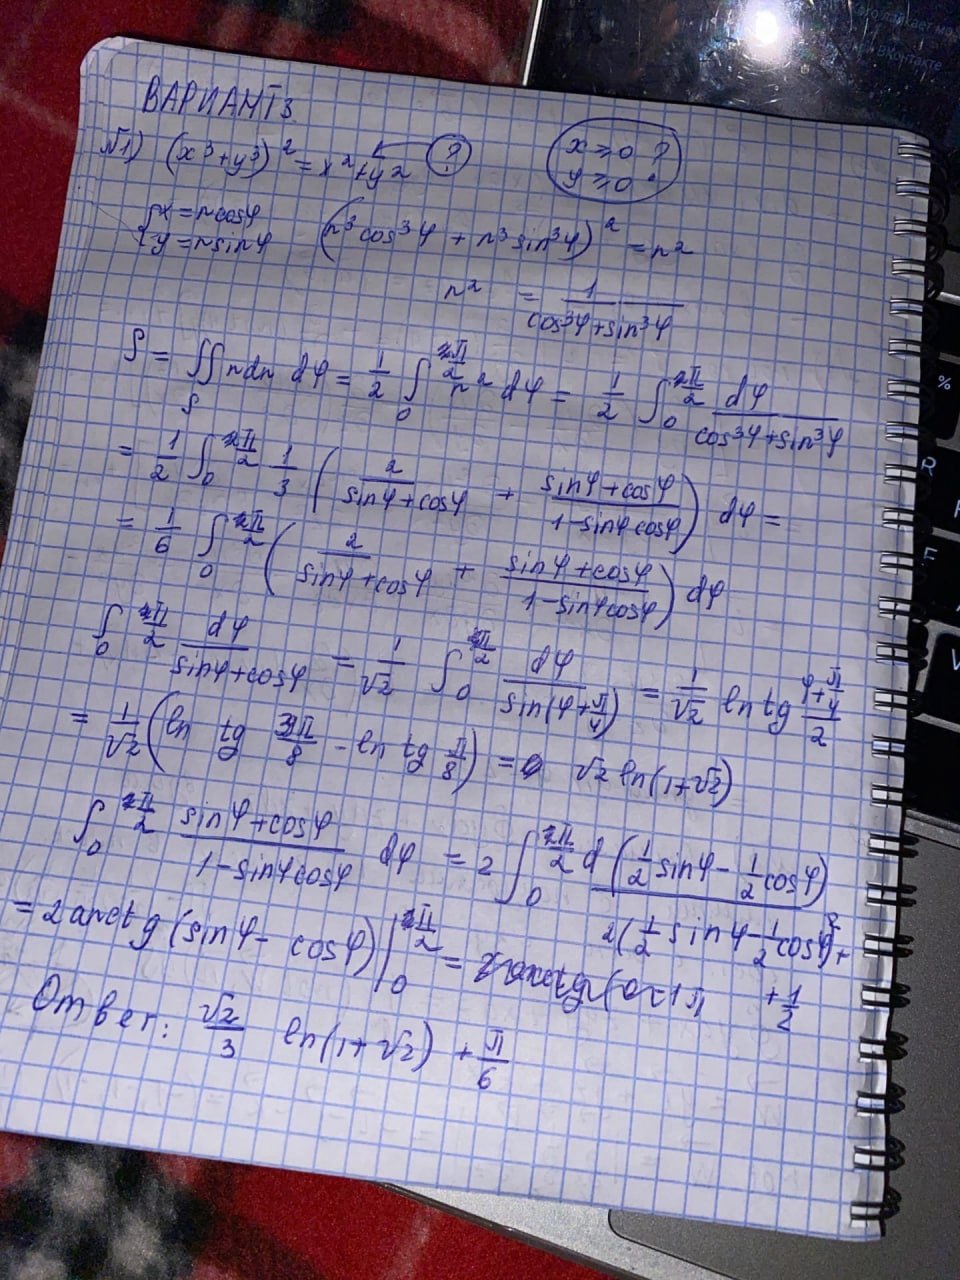 ВАРИАНТ 3
№1) (x³+y³)² = x²+y² ← ? x ≥ 0 ? y ≥ 0
{x = r cosφ
{y = r sinφ (r³cos³φ + r³sin³φ)² = r²
r² = 1/(cos³φ+sin³φ)
S = ∬_S r dr dφ = 1/2 ∫₀^{π/2} r² dφ = 1/2 ∫₀^{π/2} dφ/(cos³φ+sin³φ)
= 1/2 ∫₀^{π/2} 1/3 (2/(sinφ+cosφ) + (sinφ+cosφ)/(1-sinφcosφ)) dφ =
= 1/6 ∫₀^{π/2} (2/(sinφ+cosφ) + (sinφ+cosφ)/(1-sinφcosφ)) dφ
∫₀^{π/2} dφ/(sinφ+cosφ) = 1/√2 ∫₀^{π/2} dφ/sin(φ+π/4) = 1/√2 ln tg (φ+π/4)/2
= 1/√2 (ln tg 3π/8 - ln tg π/8) = √2 ln(1+√2)
∫₀^{π/2} (sinφ+cosφ)/(1-sinφcosφ) dφ = 2 ∫₀^{π/2} d(1/2 sinφ - 1/2 cosφ)/(2(1/2 sinφ - 1/2 cosφ)² + 1/2)
= 2 arctg(sinφ - cosφ)|₀^{π/2} = π
Ответ: √2/3 ln(1+√2) + π/6